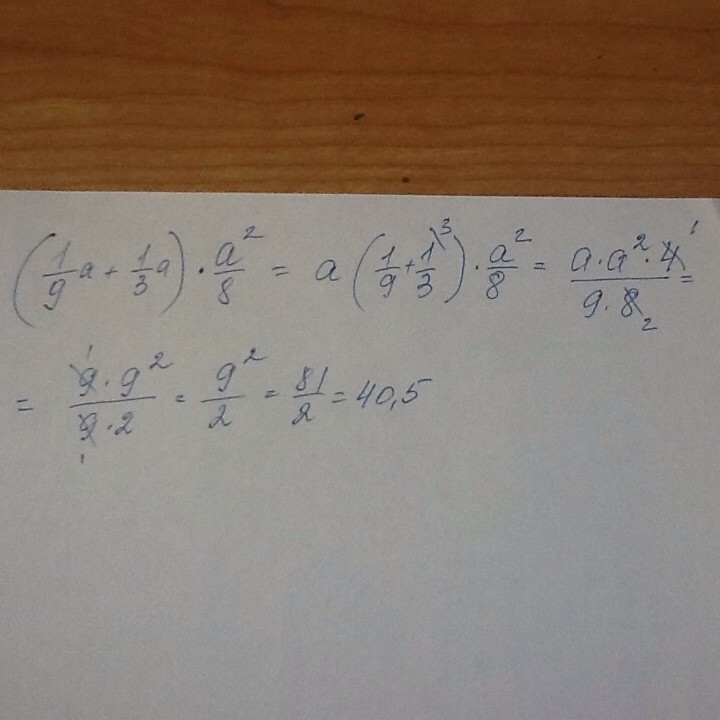 (1/9 a + 1/3 a) · a²/8 = a (1/9 + 1/3 \³) · a²/8 = a·a²·4 ¹/9·8 ₂ =
= 9 ¹·9²/9 ₁·2 = 9²/2 = 81/2 = 40,5